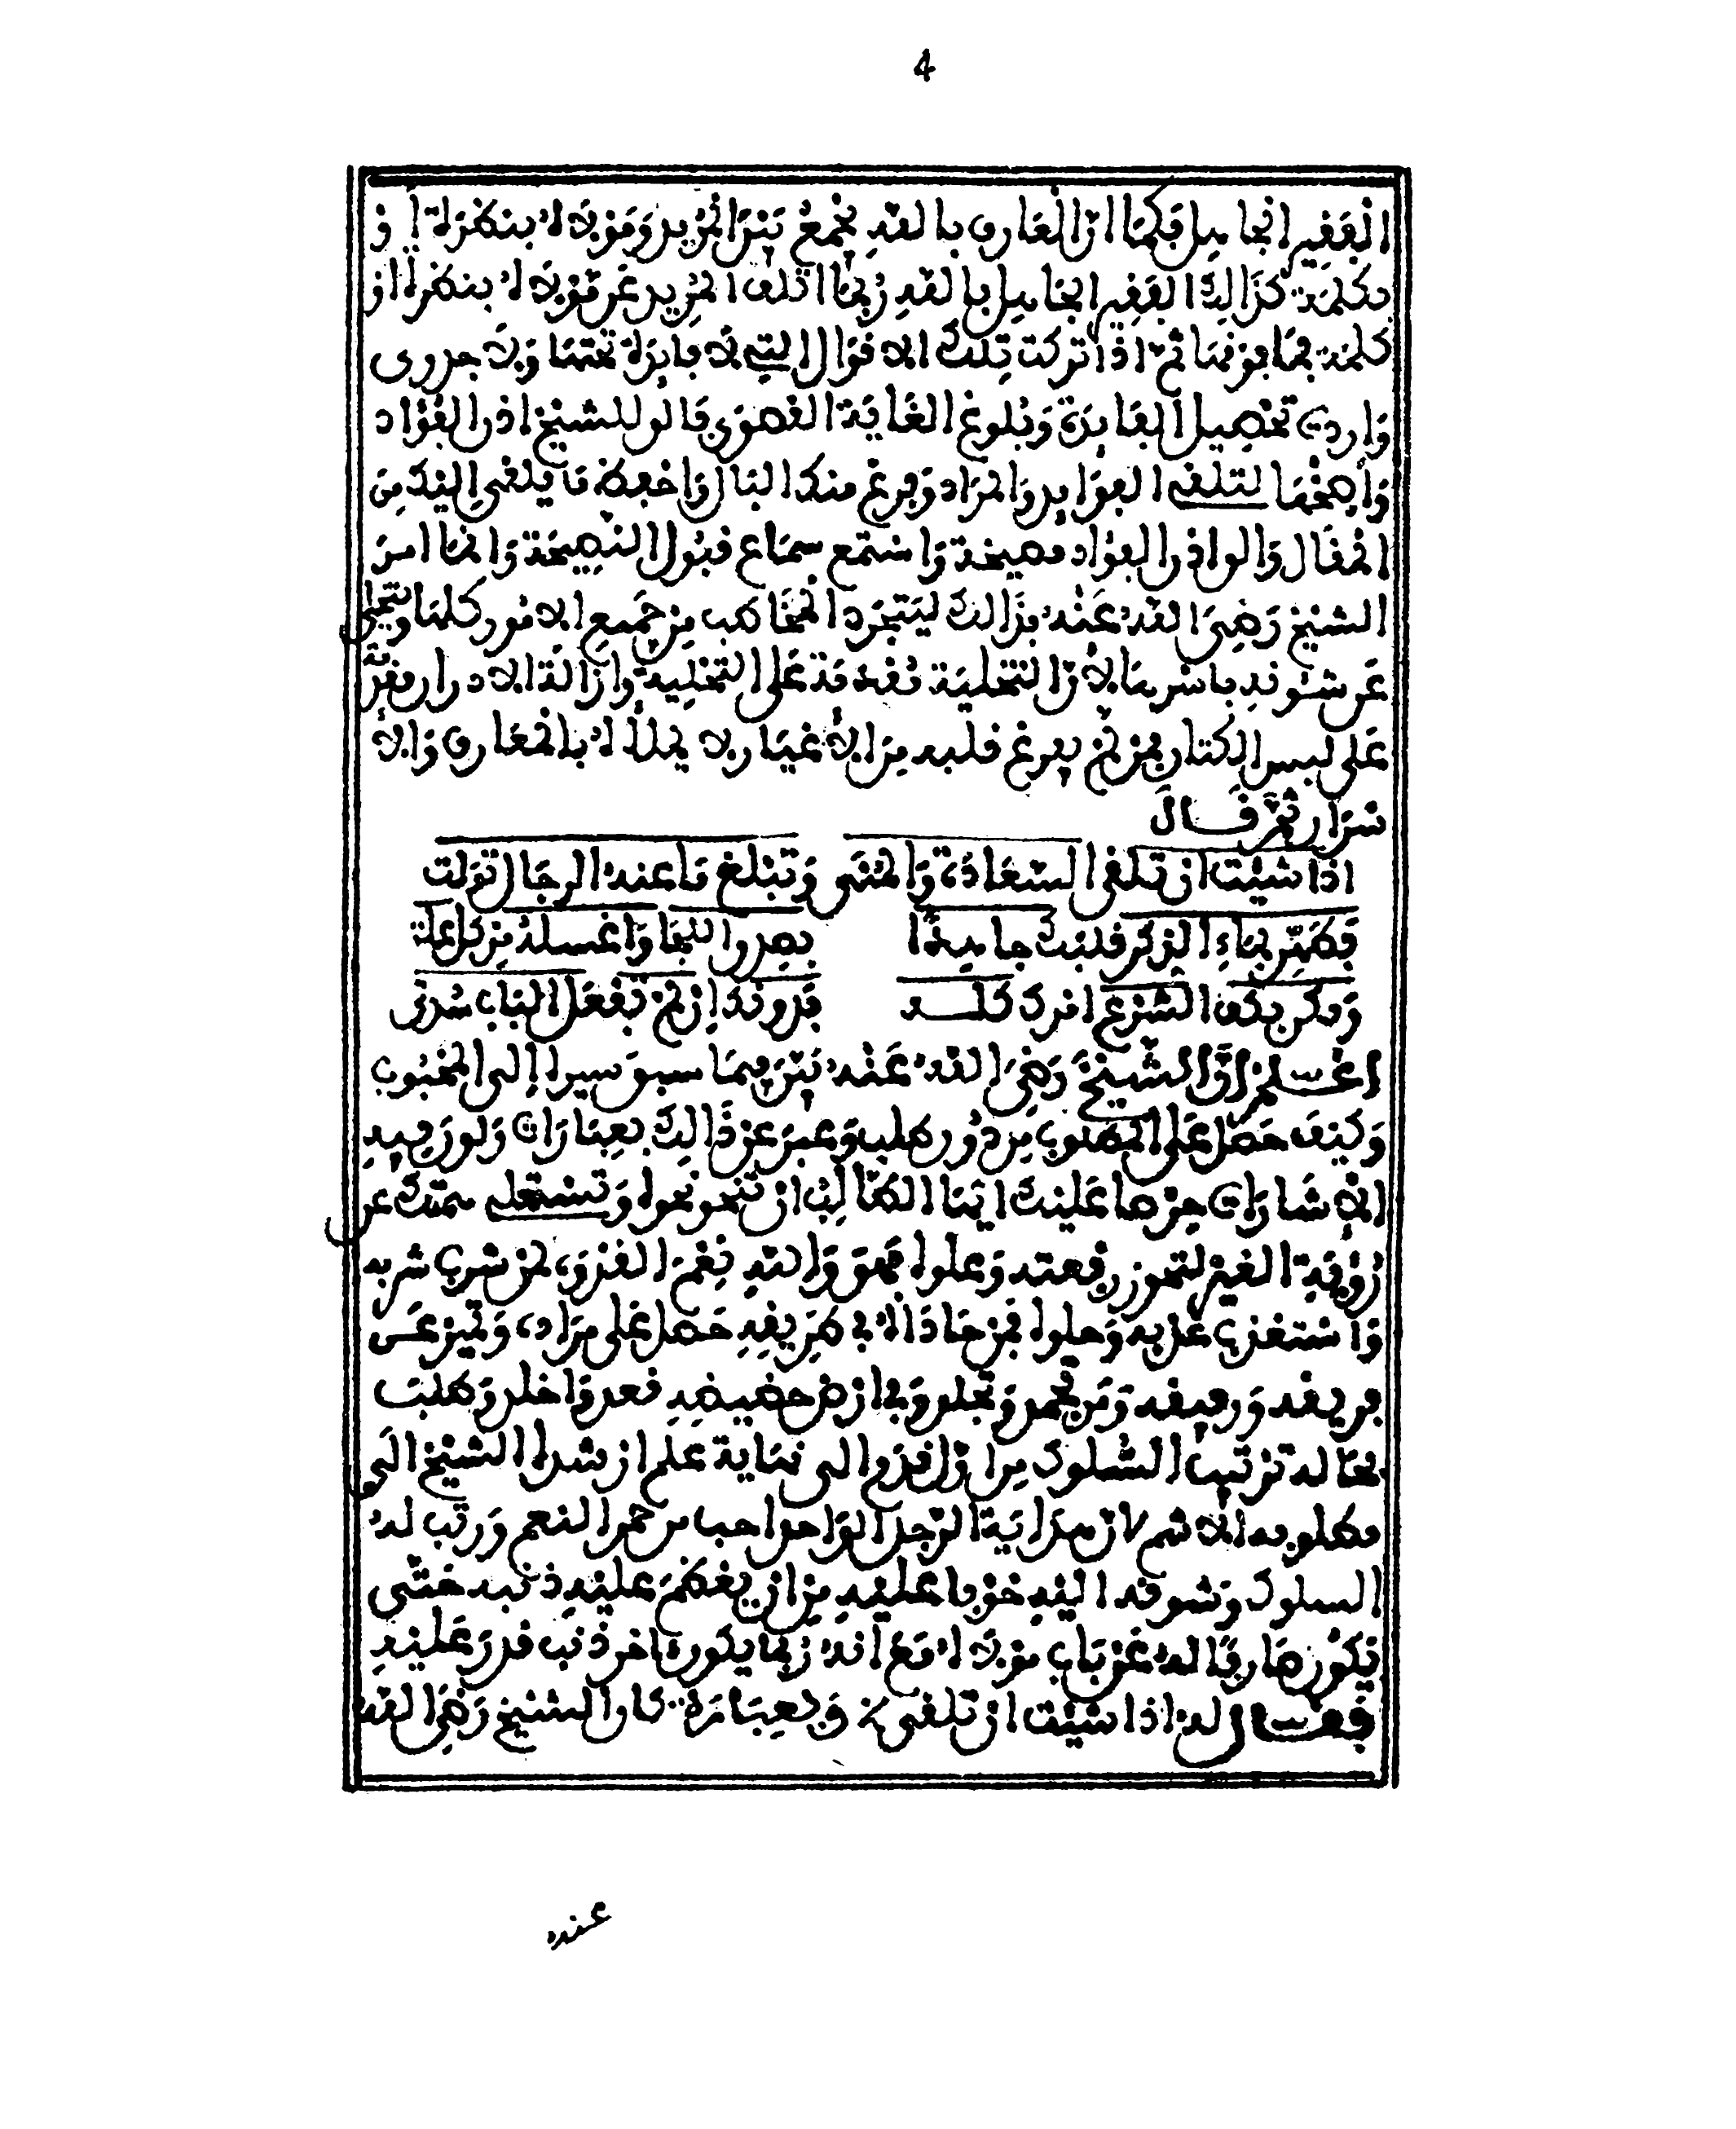 4
الفقير الجاهل فكما ان العارف بالله يجمع بين المريد ومولاه بنظرة او
بكلمة كذالك الفقير الجاهل بالله ربما اتلف المريد عن مولاه بنظرة او
كلمة فما فوقها ثم اذا تركت تلك الاقوال التي لا فايدة تحتها ولا جدوى
واردت تحصيل الفايدة وبلوغ الغاية القصوى قالوا للشيخ اذن الفؤاد
واصخها لتلقي الفوايد والمراد وفرغ منك البال واحفظ ما يلقى اليك من
المقال والو اذن الفؤاد مصيخة واستمع سماع قبول النصيحة وانما امر
الشيخ رضي الله عنه بذالك ليتجرد المخاطب من جميع الامور كلها ويتخلى
عن شئونه باسرها لان التخلية مقدمة على التحلية وازالة الادران مقدمة
على لبس الكتان فمن لم يفرغ قلبه من الاغيار لا يملأ لا بالمعارف والا
سرار ثم قال
اذا شئت ان تلقى السعادة والمنى وتبلغ ما عنه الرجال تولت
فطهر بماء الذكر قلبك جاهدا بصدق اللجا واغسله من كل علة
وفكر بكف الشرع امرك كله فدونك ان لم تفعل الباب سدت
اعلم ان الشيخ رضي الله عنه بين فيما سبق سيره الى المحبوب
وكيف حصل على المطلوب من دون طلب وعبر عن ذالك بعبارات ولوح فيه
الاشارات حرضا عليك ايها الطالب ان تنحو نحوه وتستعلي همتك عن
رؤية الغير لتحوز رفعته وعلوه فهو والله نعم القدوة لمن شرب شربه
واستعذب عذبه وحلوه فمن حاذاه في طريقه حصل على مراده وتميز عن
فريقه ورفيقه ومن تخمر وتخلو في ارض حضيضه قعد واخلد وطلبت
نحا له ترتيب السلوك من اول قدم الى نهاية علم ارشد الشيخ الى
مطلوبه الاسم لان هداية الرجل الواحد احب من حمر النعم ورتب له
السلوك وشوقه اليه خوفا عليه من ان يعظم عليه ذنبه حتى
يكون صارفا له عن باب مولاه مع انه ربما يكون اخر ذنب قدر عليه
فقال له اذا شئت ان تلقى وبعبارة كان الشيخ رضي الله
عنه